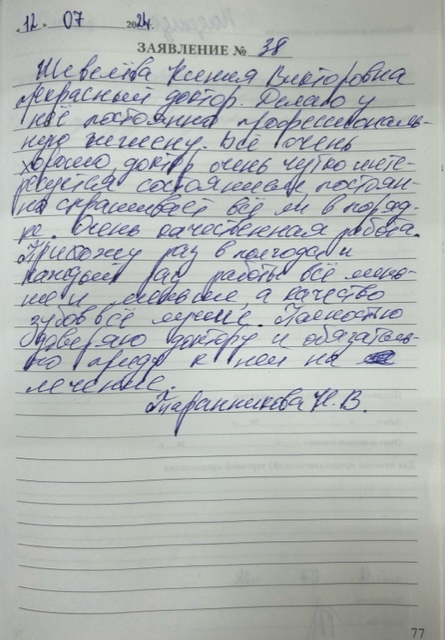 "12" 07 2024г.
ЗАЯВЛЕНИЕ № 38
Шевелёва Ксения Викторовна
прекрасный доктор. Делаю у
неё постоянно профессиональ-
ную гигиену. Всё очень
хорошо доктор очень чутко инте-
ресуется состоянием постоян-
но спрашивает всё ли в поряд-
ке. Очень качественная работа.
Прихожу раз в полгода и
каждый раз работы всё мень-
ше и меньше, а качество
зубов всё лучше. Полностью
доверяю доктору и обязатель-
но приду к ней на
лечение.
Н.В.
77